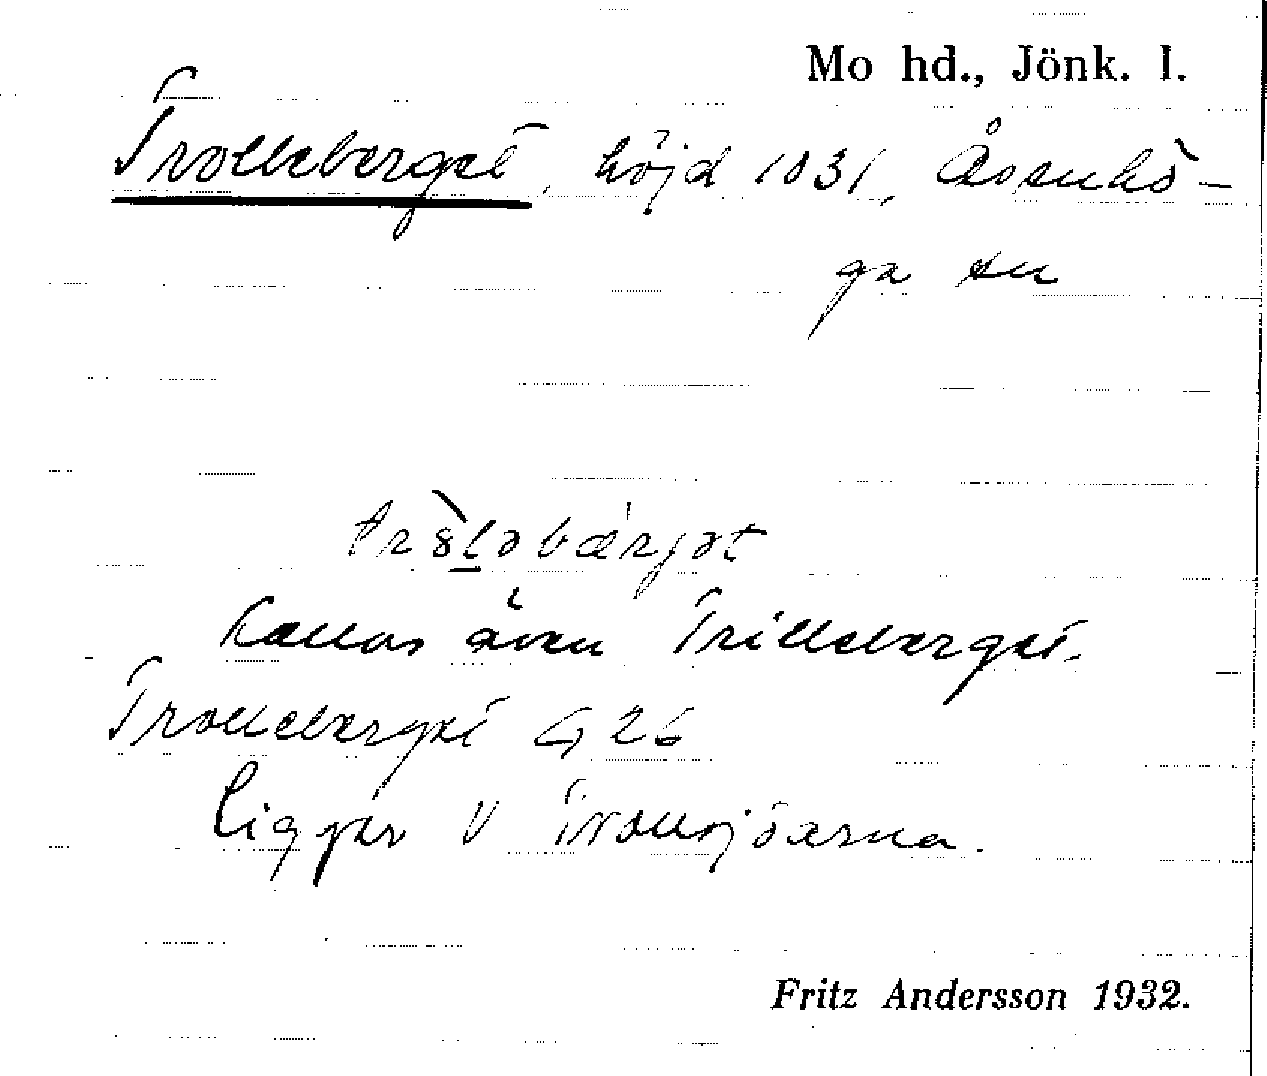 Mo hd., Jönk. l.
Trolleberget, höjd 1031, Åsenhö-
ga sn
Kallas även Trilleberget.
Trolleberget G 26
Ligger V Trollsjöarna.
Fritz Andersson 1932.